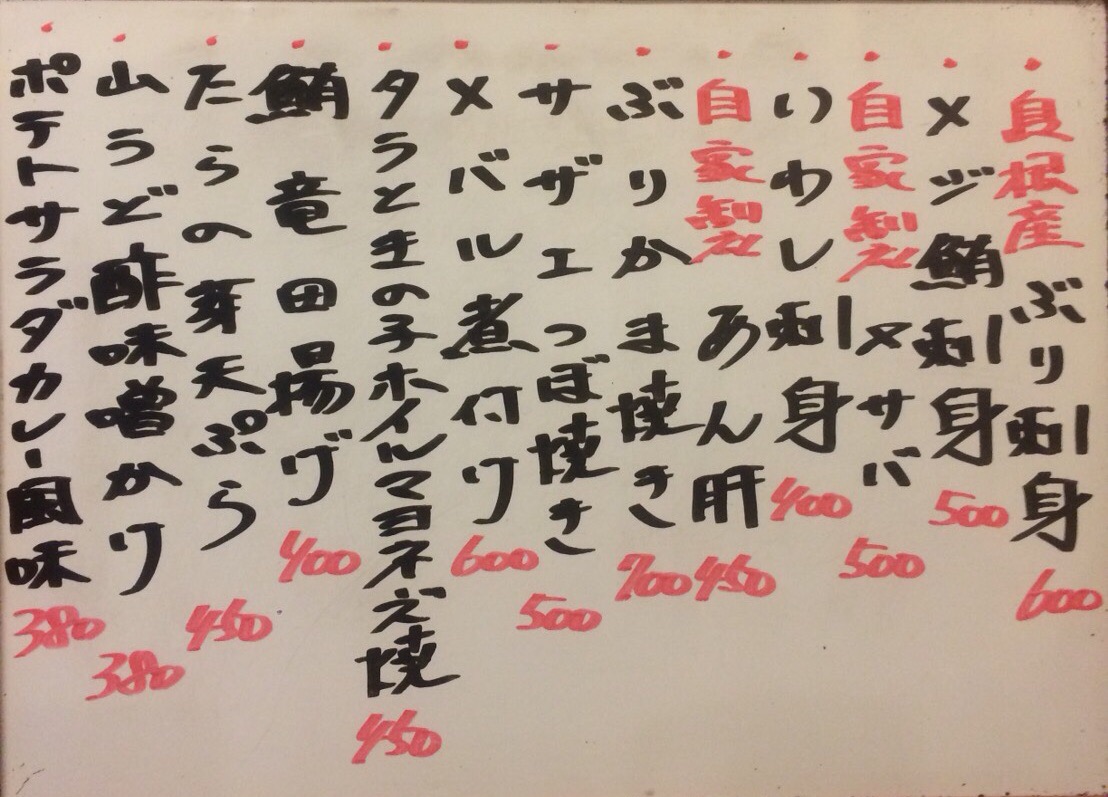 ・島根産ぶり刺身 600
・メジ鮪刺身 500
・自家製〆サバ 500
・いわし刺身 400
・自家製あん肝 450
・ぶりかま焼き 700
・サザエつぼ焼き 500
・メバル煮付け 600
・タラときの子ホイルマヨネズ焼 450
・鮪竜田揚げ 400
・たらの芽天ぷら 450
・山うど酢味噌かけ 380
・ポテトサラダカレー風味 380